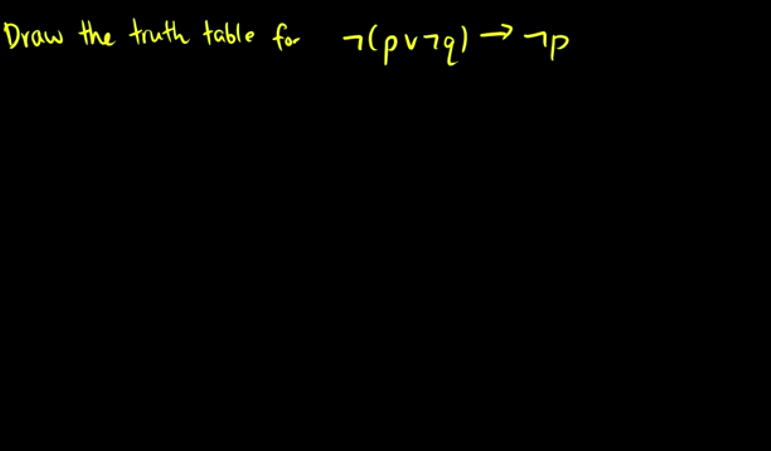 Draw the truth table for ¬(p∨¬q)→¬p